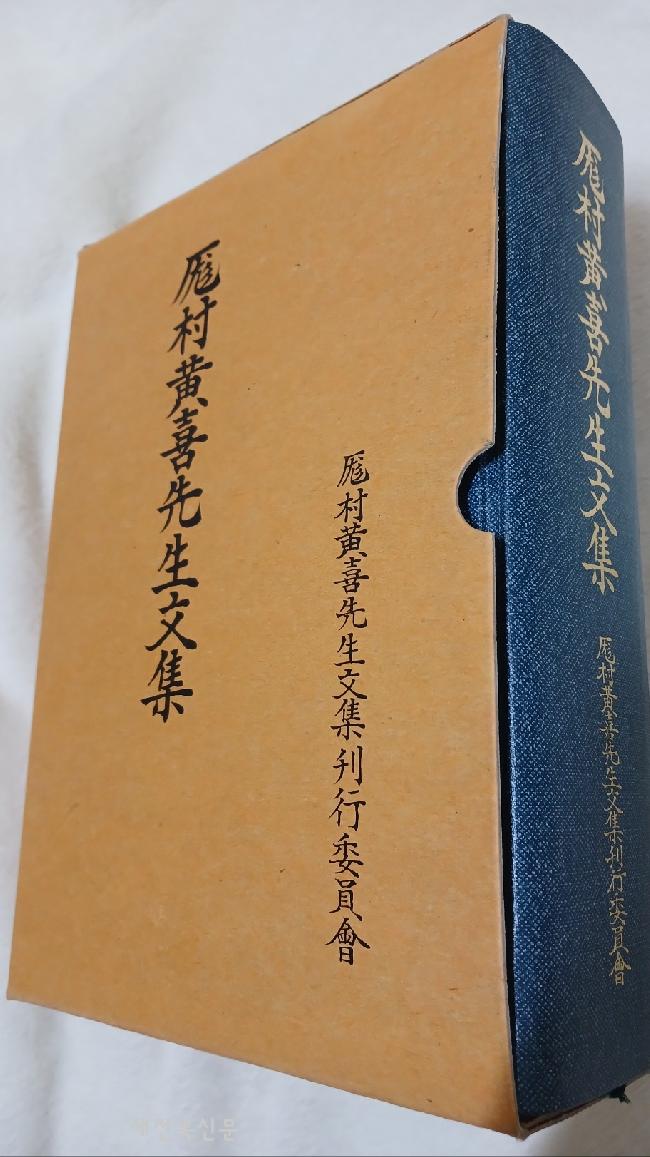 厖村黃喜先生文集
厖村黃喜先生文集刊行委員會
厖村黃喜先生文集
厖村黃喜先生文集刊行委員會
새전북신문